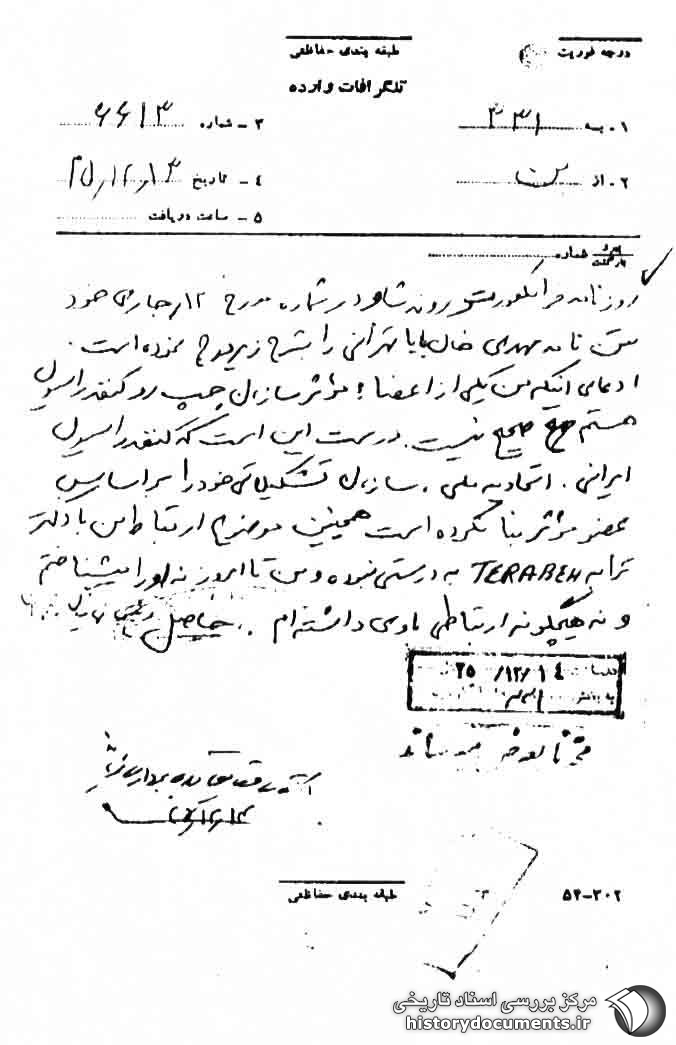 درجه فوریت
طبقه بندی حفاظتی
تلگرافات وارده
۱ـ به ۳۳۱
۳ ـ شماره ۶۶۱۳
۲ـ از
۴ ـ تاریخ ۲۵/۱۲/۱۳
۵ ـ ساعت دریافت
پیرو
بازگشت
شماره
روزنامه فرانکفورتر روند شاو در شماره مورخ ۱۲/جاری خود
متن نامه مهدی خانبابا تهرانی را بشرح زیر درج نموده است.
ادعای اینکه من یکی از اعضاء مؤثر سازمان چپ رو کنفدراسیون
هستم صحیح نیست. درست این است که کنفدراسیون
ایرانی. اتحادیه ملی. سازمان تشکیلاتی خود را براساس
عضو مؤثر بنا نکرده است همچنین موضوع ارتباط من با دکتر
ترابه TERABEH به درستی نبوده و من تا امروز نه او را میشناختم
و نه هیچگونه ارتباطی با وی داشته ام.
۲۵/۱۲/۱۴
به بخش
بعرض میرساند
طبقه بندی حفاظتی
۵۴-۳۰۲
مرکز بررسی اسناد تاریخی
historydocuments.ir